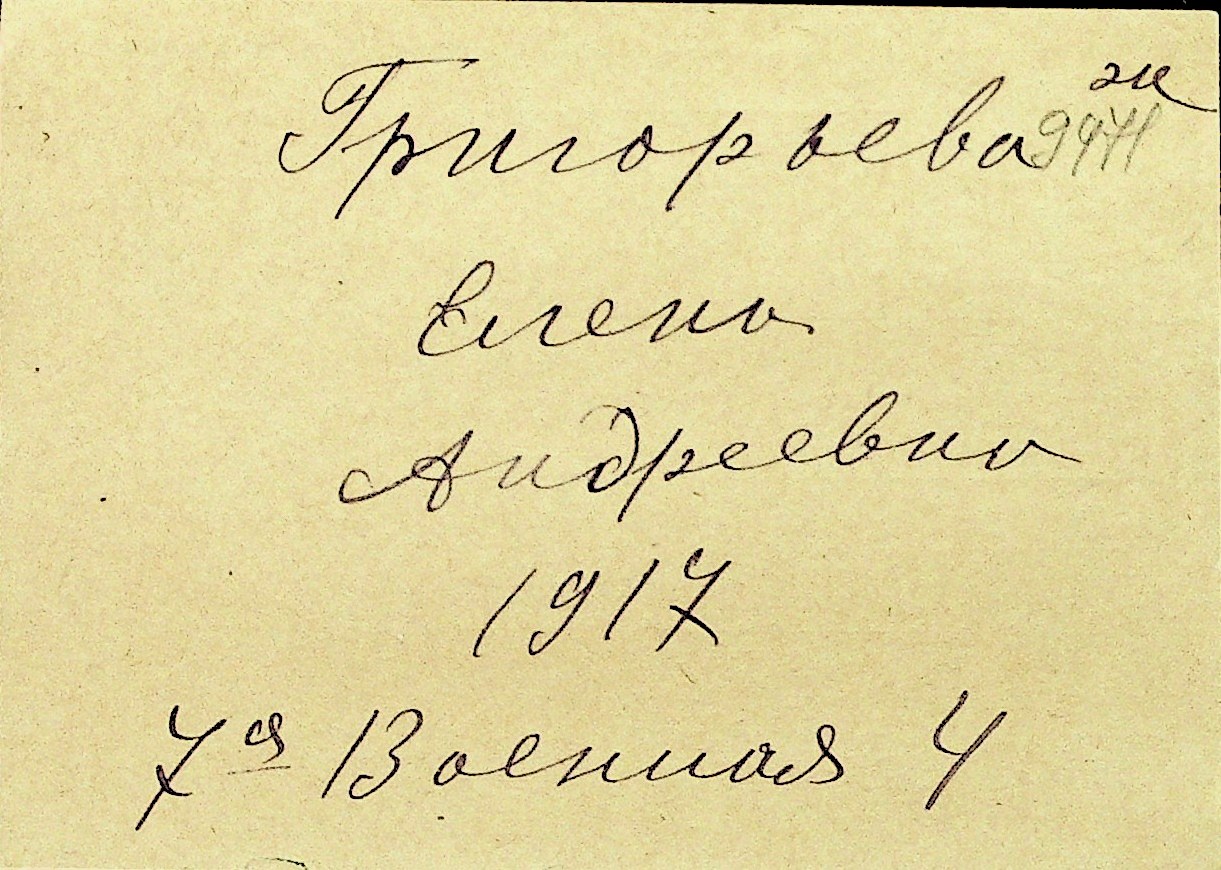 ж
Григорьева 9471
Елена
Андреевна
1917
7ая Военная 4